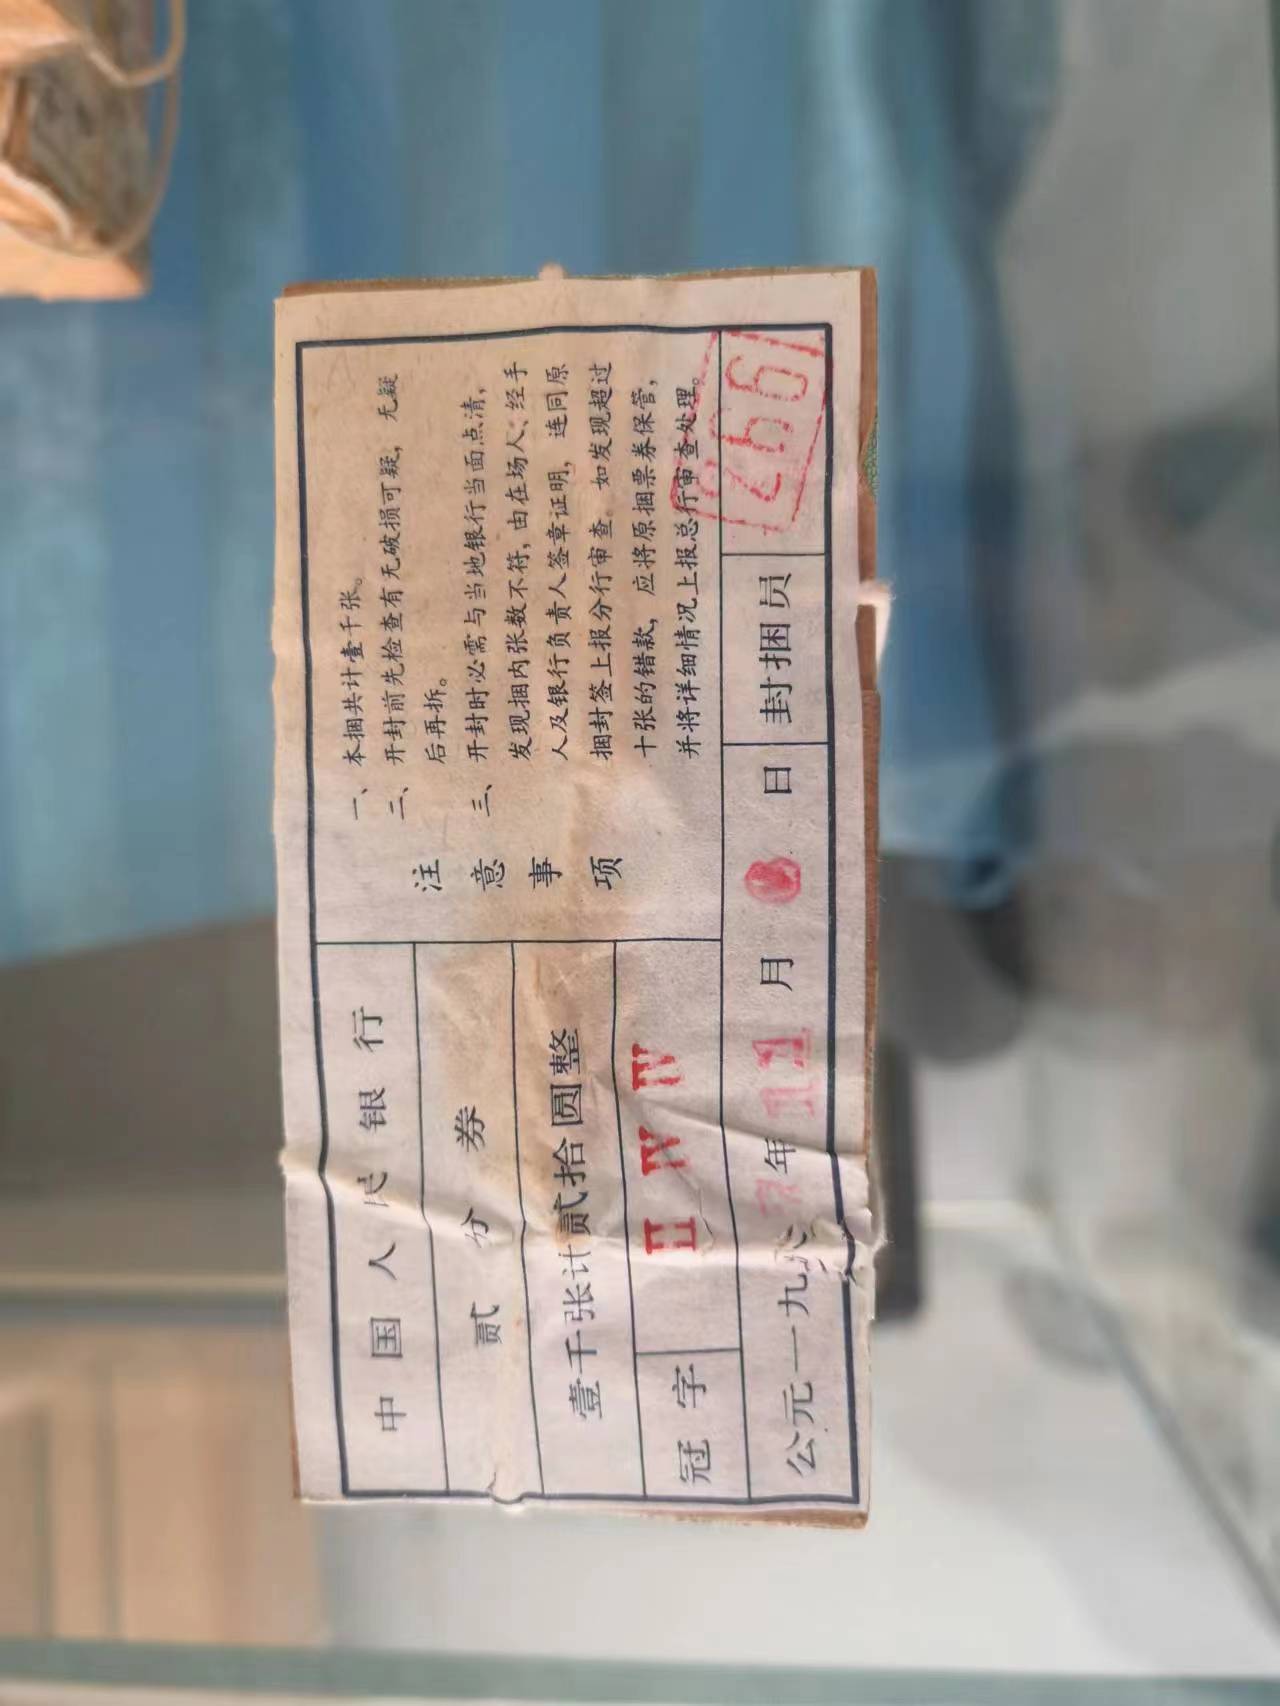 中国人民银行
贰分券
壹千张计贰拾圆整
冠字 II IV IV
注意事项
一、本捆共计壹千张。
二、开封前先检查有无破损可疑，无疑
后再拆。
三、开封时必需与当地银行当面点清，
发现捆内张数不符，由在场人、经手
人及银行负责人签章证明，连同原
捆封签上报分行审查。如发现超过
十张的错款，应将原捆票券保管，
并将详细情况上报总行审查处理。
公元一九 年11月 日 封捆员